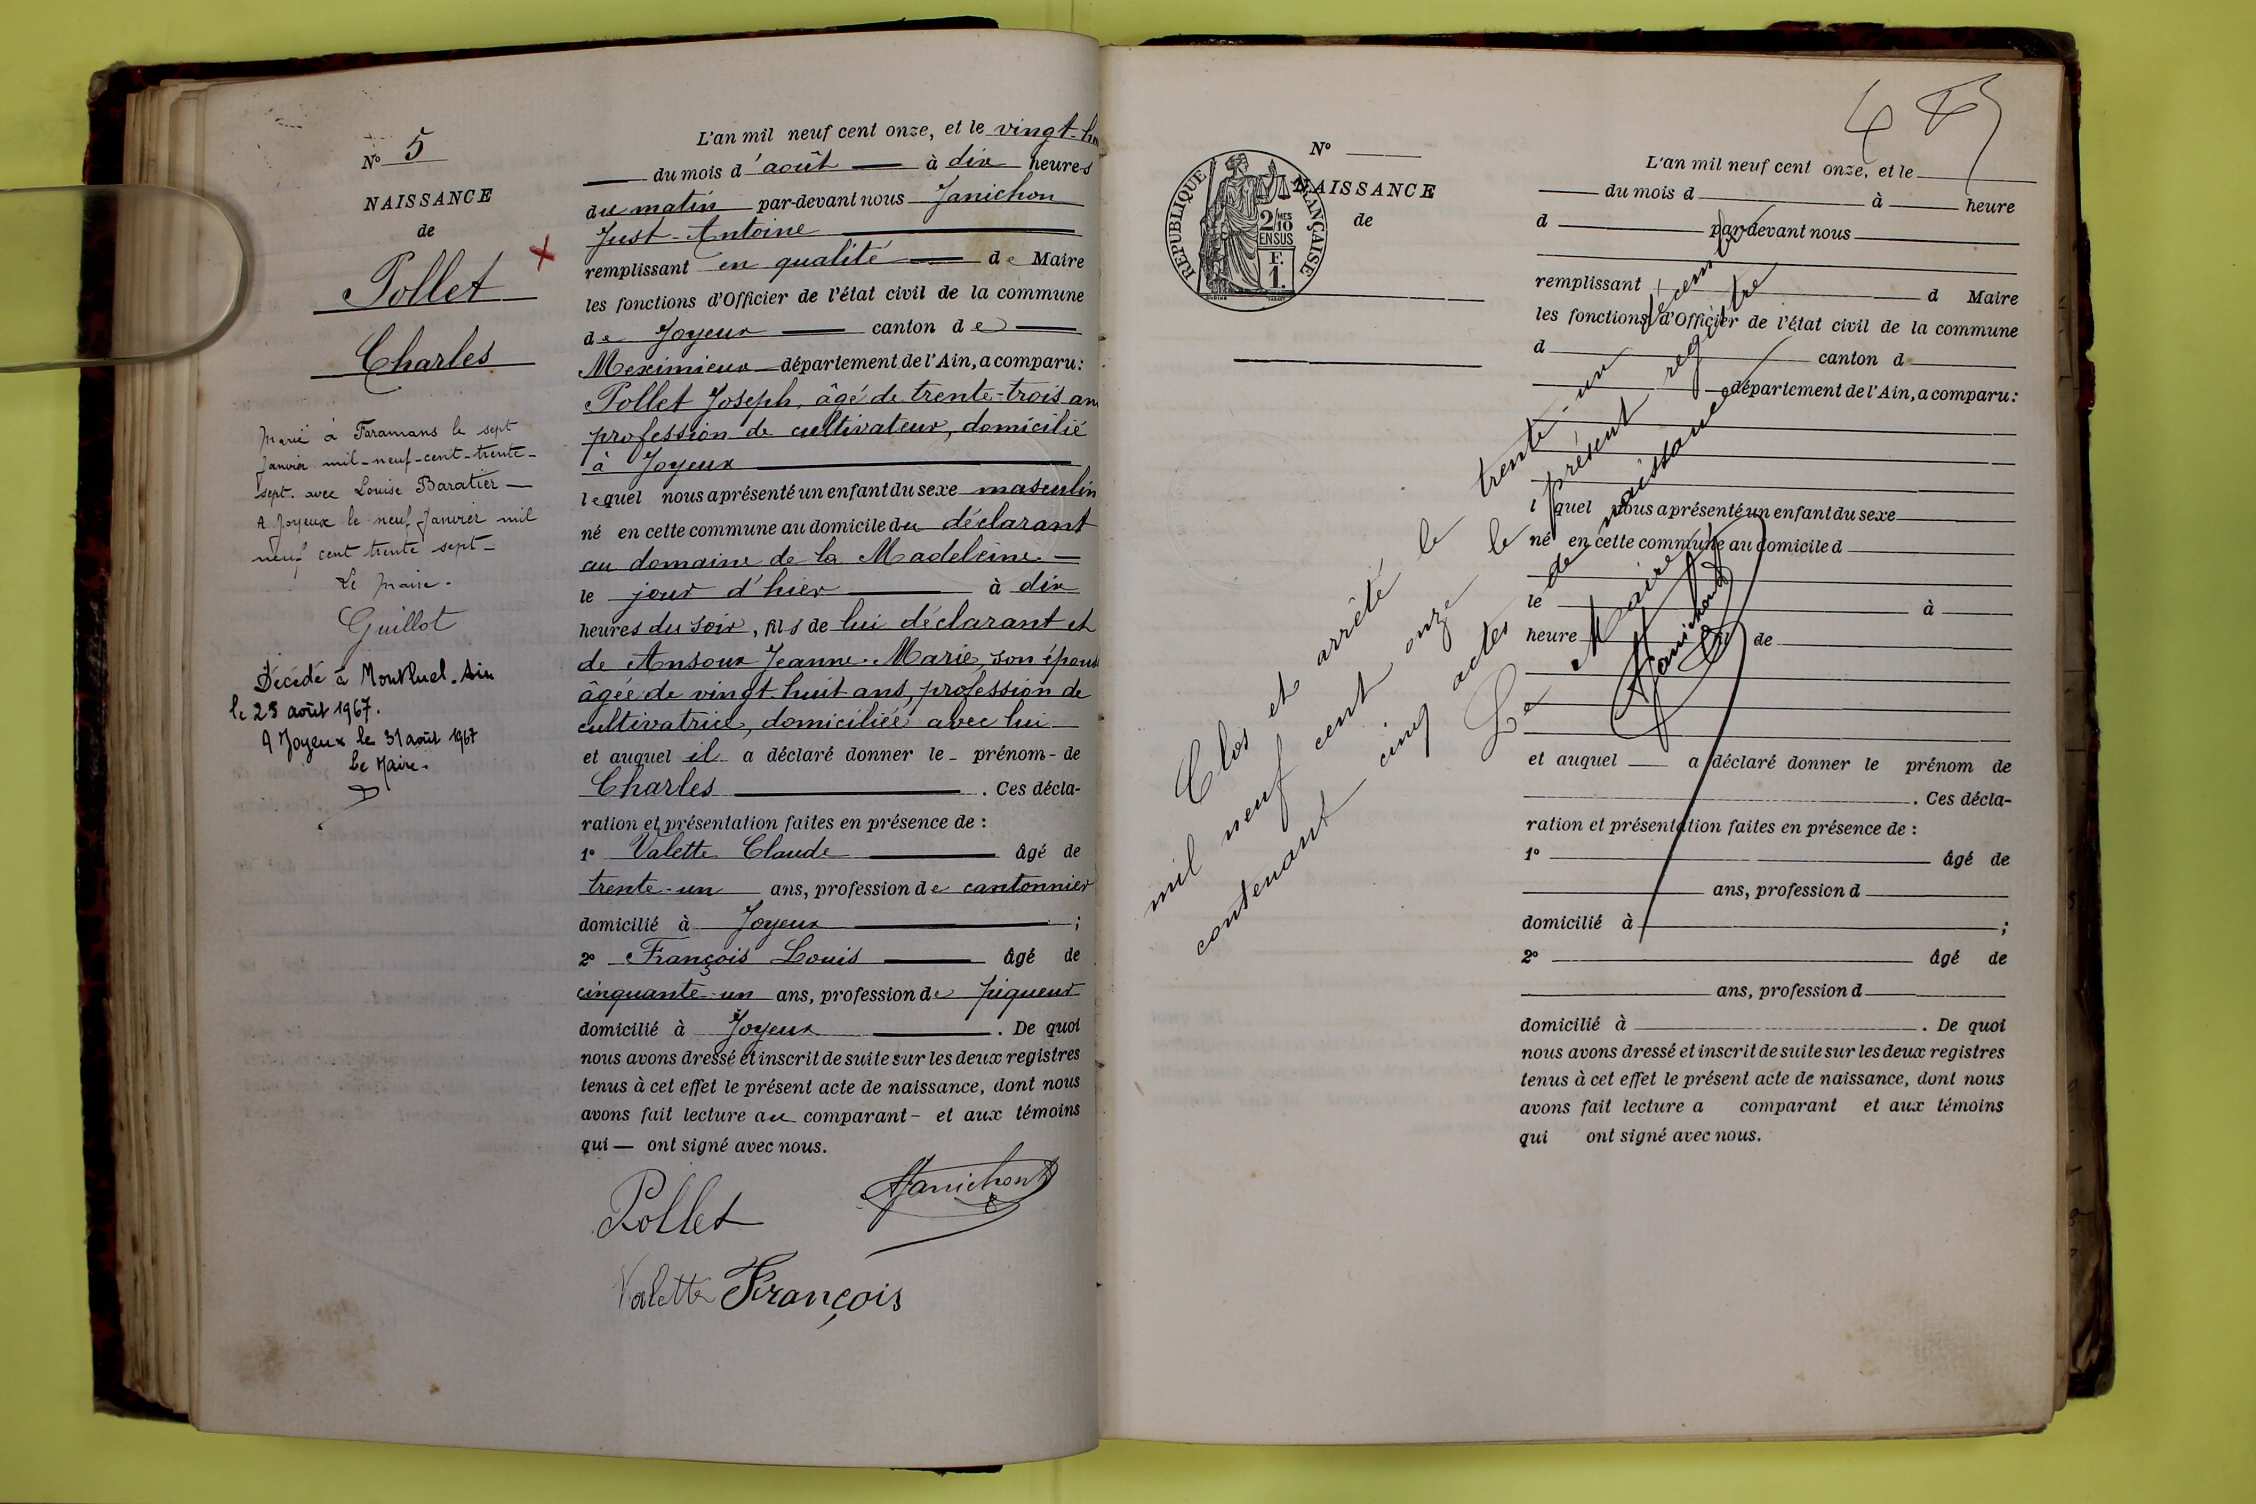 N° 5
NAISSANCE
de
Pollet
Charles
Marié à Faramans le sept
Janvier mil-neuf-cent-trente-
sept. avec Louise Baratier —
A Joyeux le neuf Janvier mil
neuf cent trente sept —
Le Maire.
Guillot
Décédé à Montluel. Ain
le 29 août 1967.
A Joyeux le 31 août 1967
Le Maire.
L'an mil neuf cent onze, et le vingt-
du mois d'août — à dix heures
du matin par-devant nous Janichon
Just-Antoine
remplissant en qualité — de Maire
les fonctions d'Officier de l'état civil de la commune
de Joyeux — canton de —
Meximieux département de l'Ain, a comparu:
Pollet Joseph, âgé de trente-trois ans
profession de cultivateur, domicilié
à Joyeux
lequel nous a présenté un enfant du sexe masculin
né en cette commune au domicile du déclarant
au domaine de la Madeleine. —
le jour d'hier — à dix
heures du soir, fils de lui déclarant et
de Ansoux Jeanne-Marie, son épouse
âgée de vingt-huit ans, profession de
cultivatrice, domiciliée avec lui
et auquel il a déclaré donner le - prénom - de
Charles — . Ces décla-
ration et présentation faites en présence de :
1° Valette Claude — âgé de
trente-un ans, profession de cantonnier
domicilié à Joyeux — ;
2° François Louis — âgé de
cinquante-un ans, profession de piqueur
domicilié à Joyeux — . De quoi
nous avons dressé et inscrit de suite sur les deux registres
tenus à cet effet le présent acte de naissance, dont nous
avons fait lecture au comparant - et aux témoins
qui — ont signé avec nous.
Pollet
Janichon
Valette François
N°
NAISSANCE
de
RÉPUBLIQUE FRANÇAISE
2/10 MES
EN SUS
F.
1.
L'an mil neuf cent onze, et le
du mois d à heure
d par-devant nous
remplissant d Maire
les fonctions d'Officier de l'état civil de la commune
d canton d
département de l'Ain, a comparu:
l quel nous a présenté un enfant du sexe
né en cette commune au domicile d
le à
heure de
et auquel a déclaré donner le prénom de
. Ces décla-
ration et présentation faites en présence de :
1° âgé de
ans, profession d
domicilié à ;
2° âgé de
ans, profession d
domicilié à . De quoi
nous avons dressé et inscrit de suite sur les deux registres
tenus à cet effet le présent acte de naissance, dont nous
avons fait lecture a comparant et aux témoins
qui ont signé avec nous.
Clos et arrêté le trente-un décembre
mil neuf cent onze le présent registre
contenant cinq actes de naissance
Le Maire
Janichon